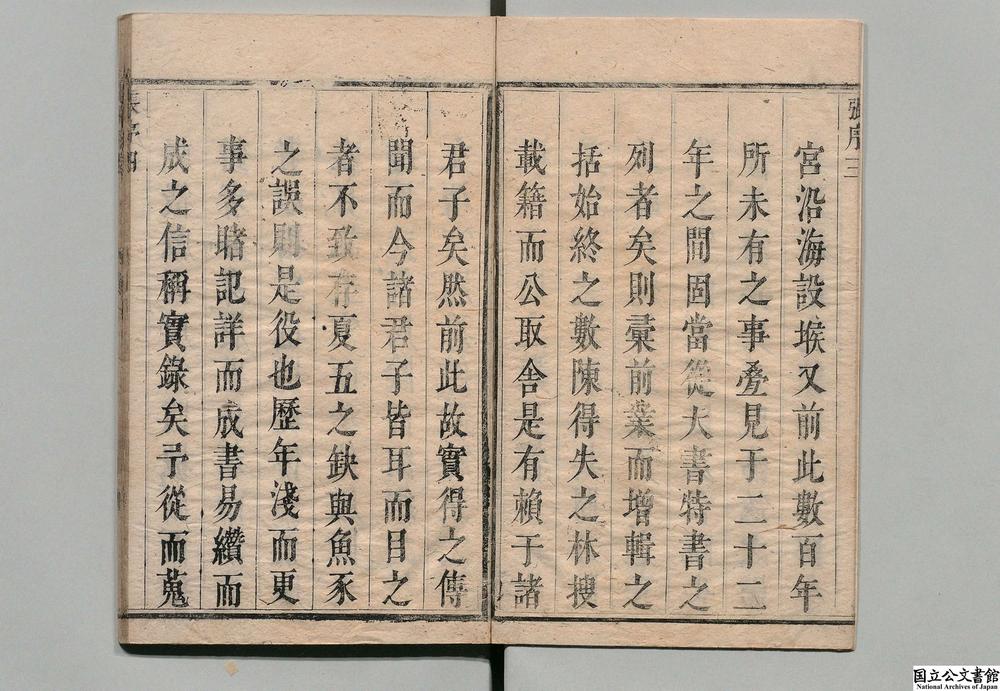 張序 三
宮沿海設堠又前此數百年
所未有之事疊見于二十二
年之間固當從大書特書之
列者矣則彙前業而增輯之
括始終之數陳得失之林搜
載籍而公取舍是有賴于諸
君子矣然前此故實得之傳
聞而今諸君子皆耳而目之
者不致存夏五之缺與魚豕
之誤則是役也歷年淺而更
事多睹記詳而成書易纘而
成之信稱實錄矣予從而蒐
序四
国立公文書館
National Archives of Japan